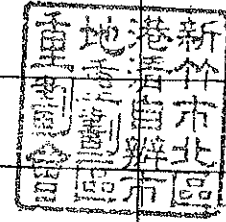 新竹市北區
港活自辦市
地重劃區
重劃會